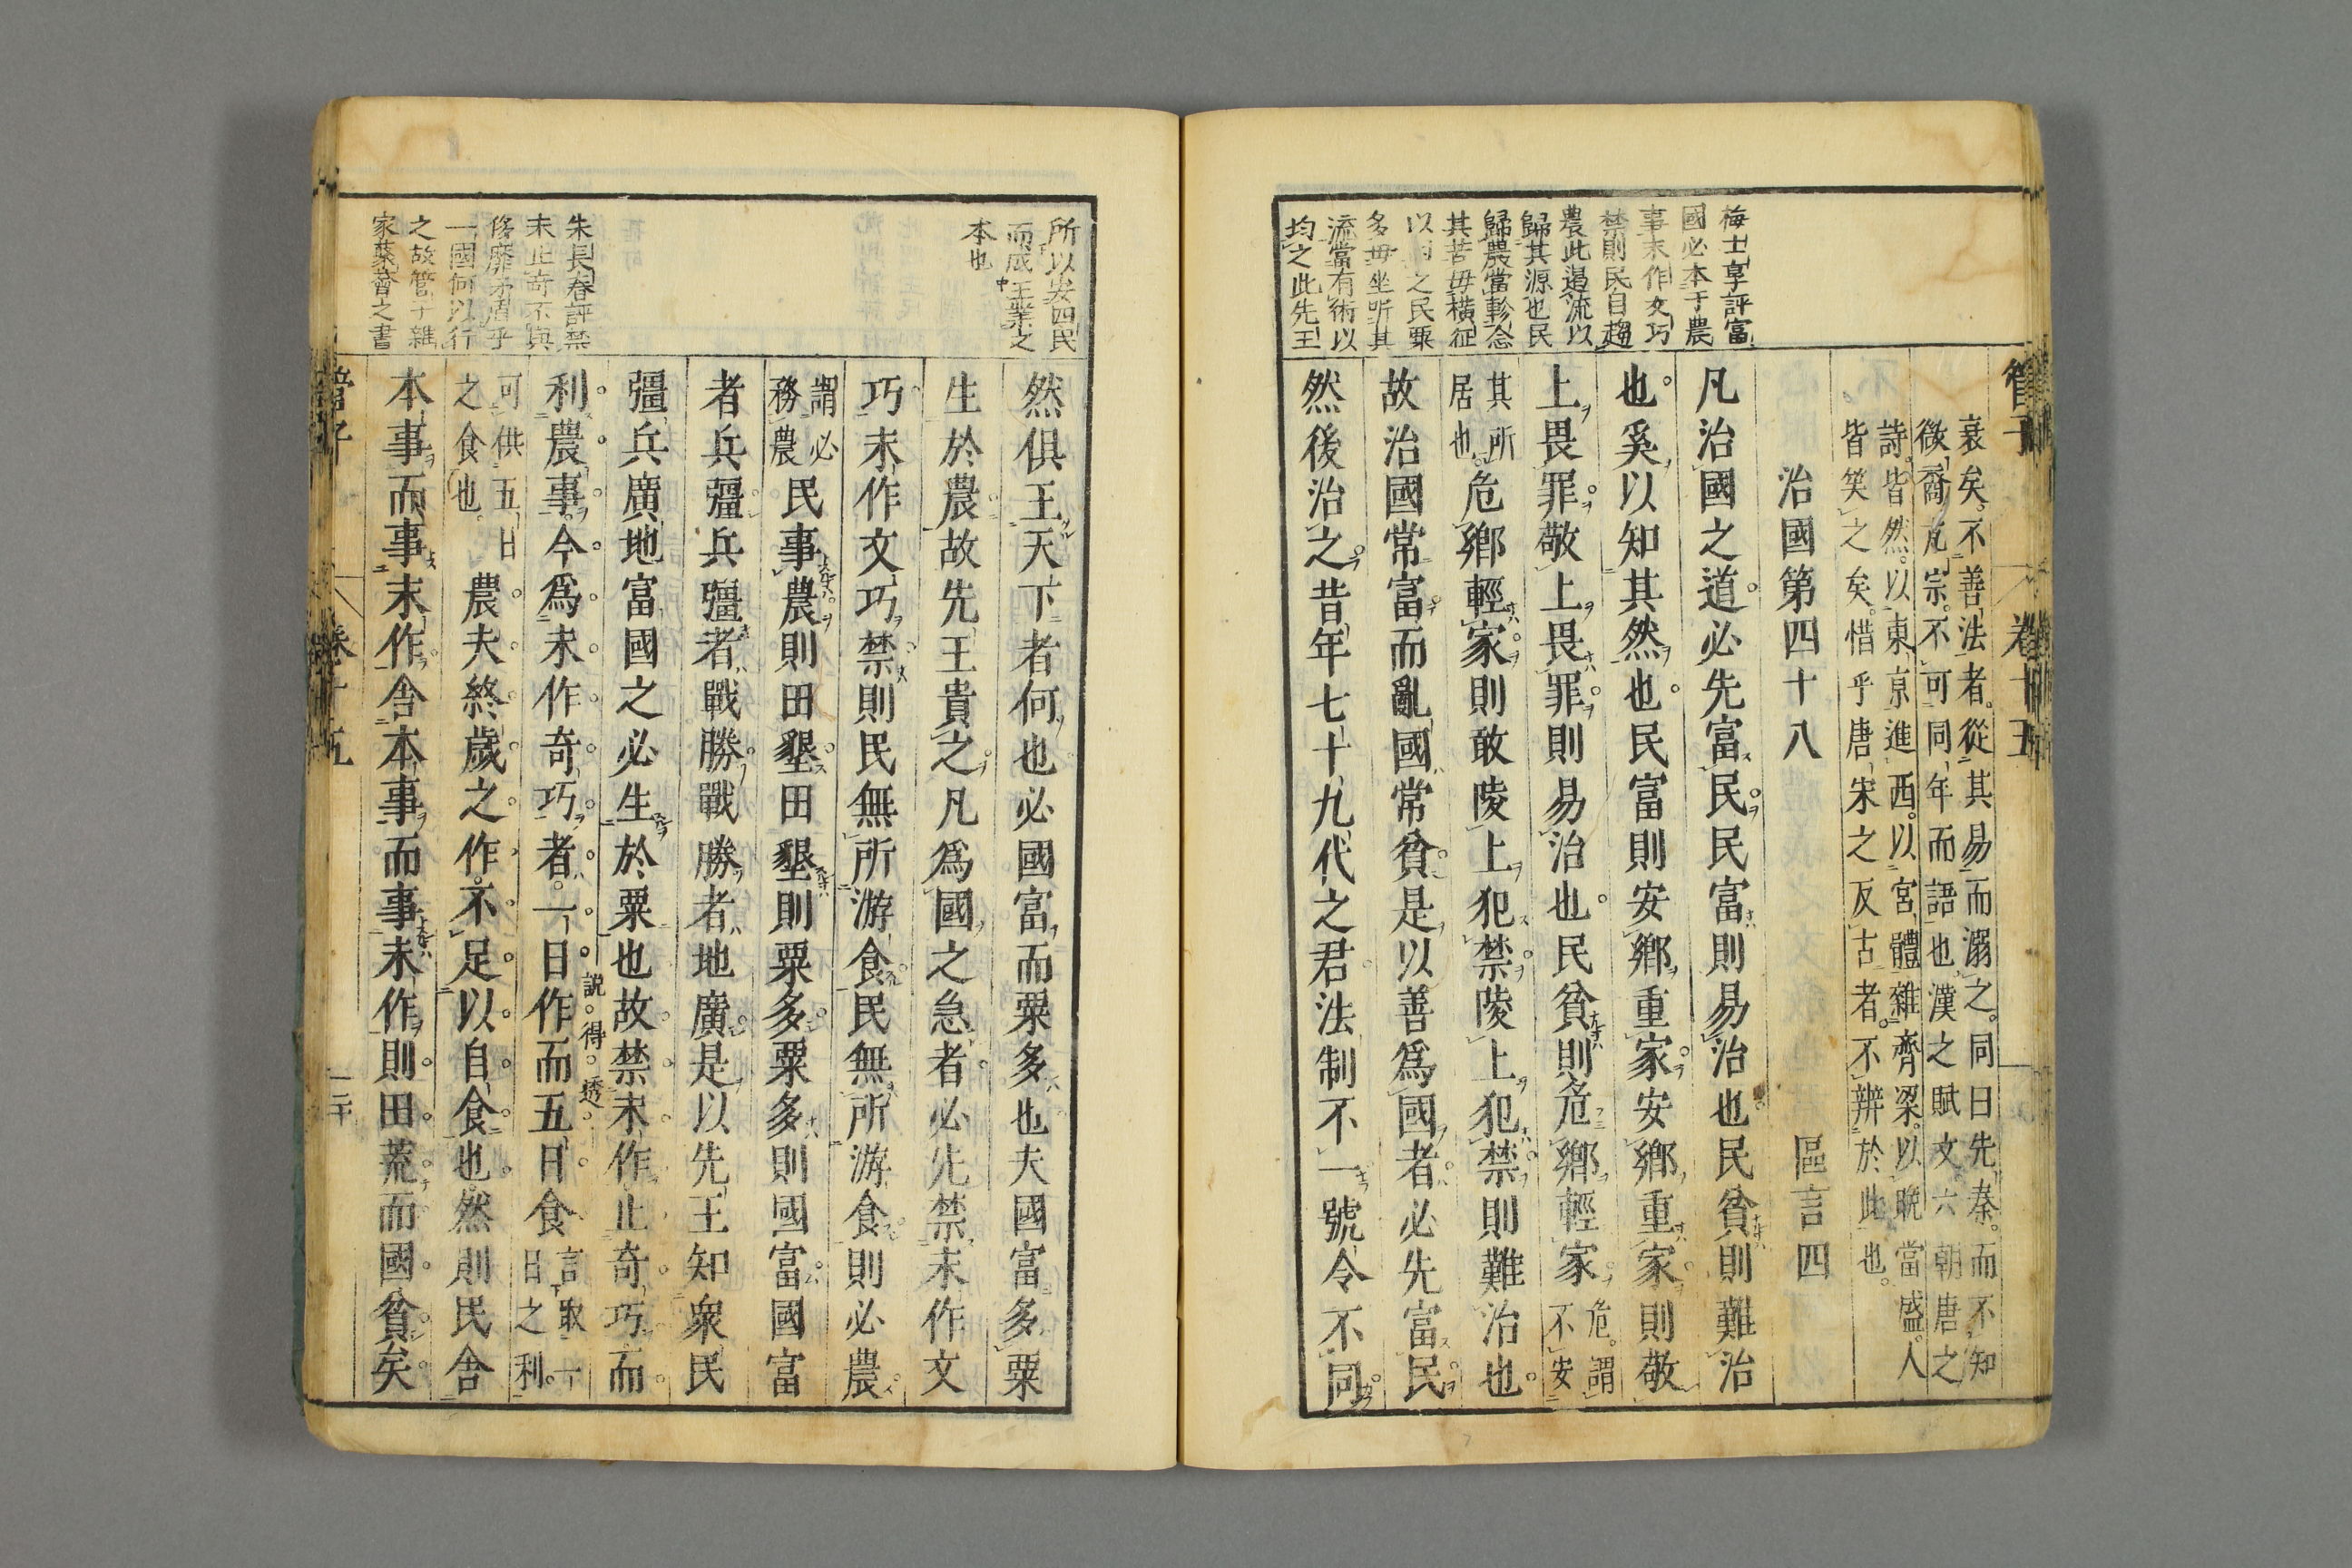 管子
卷十五
衰矣不善法者從其易而溺之同日先秦而不知
不可同年而語也漢之賦文六朝唐之
詩皆然以東京進西以宮體雜齊梁以晩當盛人
皆笑之矣惜乎唐宋之反古者不辨於此也
治國第四十八
區言四
凡治國之道必先富民民富則易治也民貧則難治
也奚以知其然也民富則安鄉重家安鄉重家則敬
上畏罪敬上畏罪則易治也民貧則危鄉輕家
危謂
不安
其所
居也
危鄉輕家則敢陵上犯禁陵上犯禁則難治也
故治國常富而亂國常貧是以善爲國者必先富民
然後治之昔年七十九代之君法制不一號令不同
梅士享評富
國必本于農
事末作文巧
禁則民自趨
農此遏流以
歸其源也民
歸農當軫念
其苦毋橫征
以之民粟
多毋坐听其
流當有術以
均之此先王
所以安四民
而成王業之
本也
然俱王天下者何也必國富而粟多也夫國富多粟
生於農故先王貴之凡爲國之急者必先禁末作文
巧末作文巧禁則民無所游食民無所游食則必農
謂必
務農
民事農則田墾田墾則粟多粟多則國富國富
者兵彊兵彊者戰勝戰勝者地廣是以先王知衆民
彊兵廣地富國之必生於粟也故禁末作止奇巧而
利農事今爲末作奇巧者一日作而五日食
說得透
言取一
日之利
可供五日
之食也
農夫終歲之作不足以自食也然則民舍
本事而事末作舍本事而事末作則田荒而國貧矣
朱長春評禁
末止奇不與
侈靡矛盾乎
一國何以行
之故管子雜
家蘂薈之書
管子
卷十五
二十